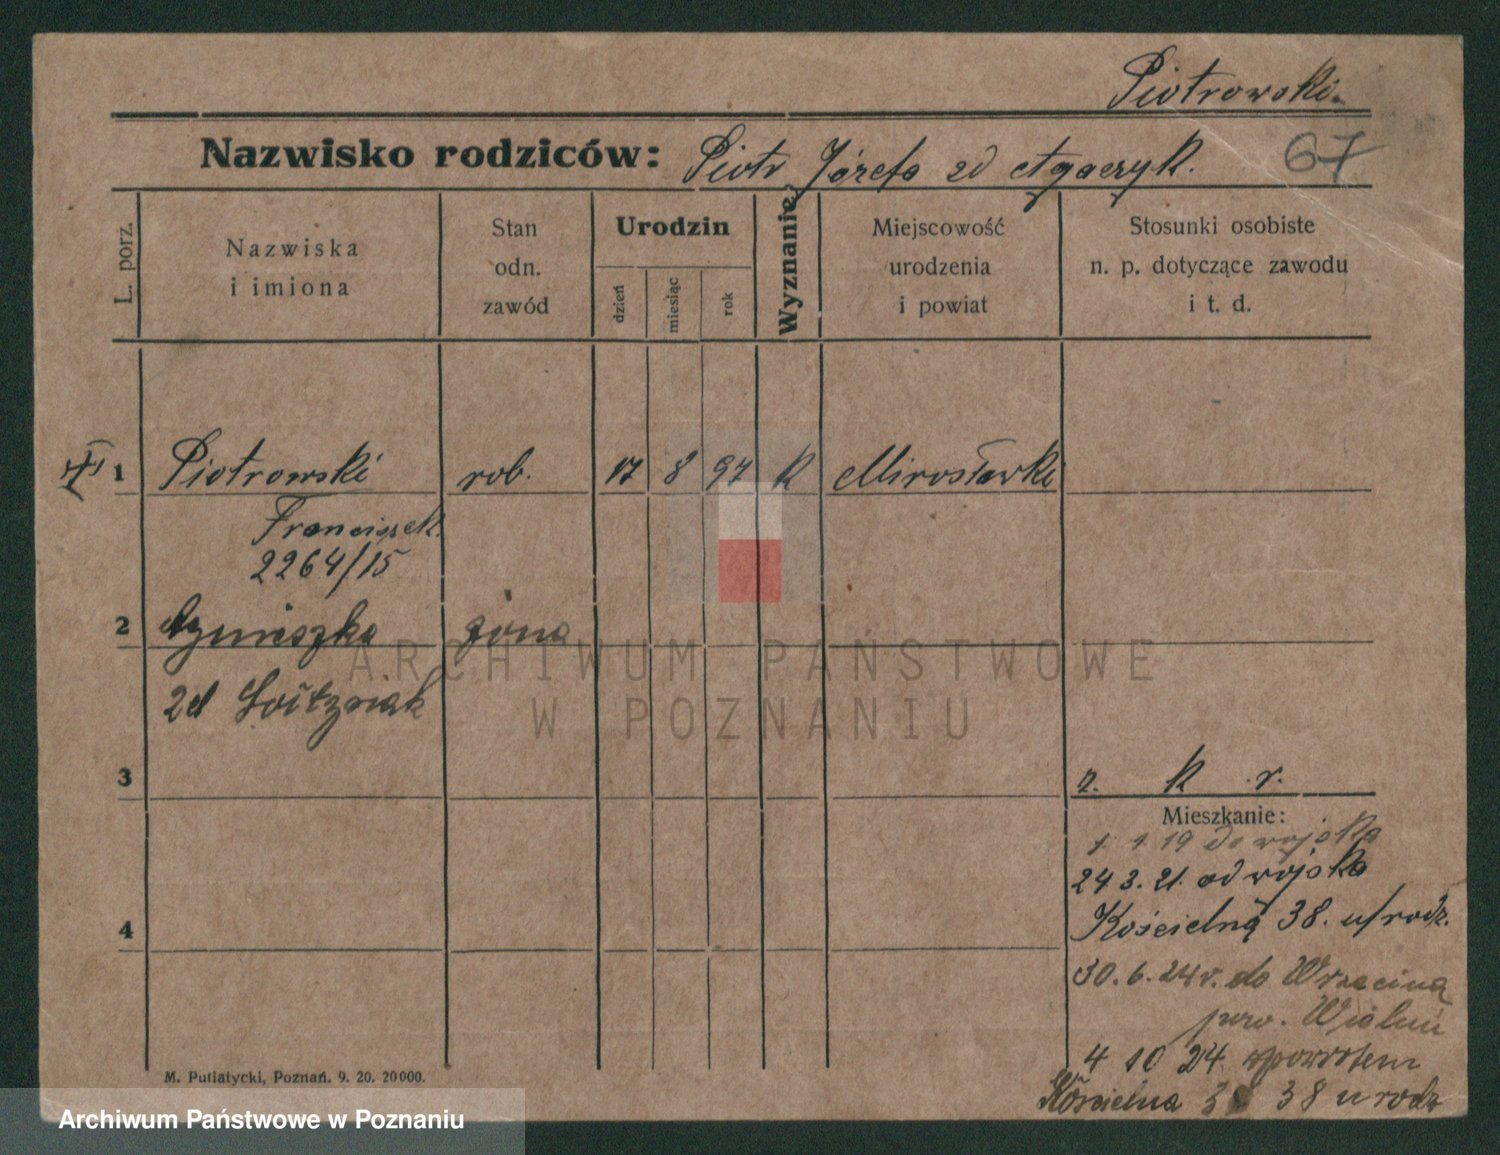 Piotrowski.
Nazwisko rodziców: Piotr Józefa zd Agaczyk. 67
L. porz.
Nazwiska
i imiona
Stan
odn.
zawód
Urodzin
dzień
miesiąc
rok
Wyznanie
Miejscowość
urodzenia
i powiat
Stosunki osobiste
n. p. dotyczące zawodu
i t. d.
1 Piotrowski rob. 17 8 97 k Mirosławki
Franciszek.
2264/15
2 Agnieszka żona
zd
3
z. k r.
Mieszkanie:
1. 1. 19 do wojska
24 3. 21. od wojska
4
Kościelną 38. u/rodz.
30. 6. 24 r. do
pow. Wieluń
4 10 24 zpowrotem
Kościelna 38 u rodz
M. Putiatycki, Poznań. 9. 20. 20000.
ARCHIWUM PAŃSTWOWE
W POZNANIU
Archiwum Państwowe w Poznaniu